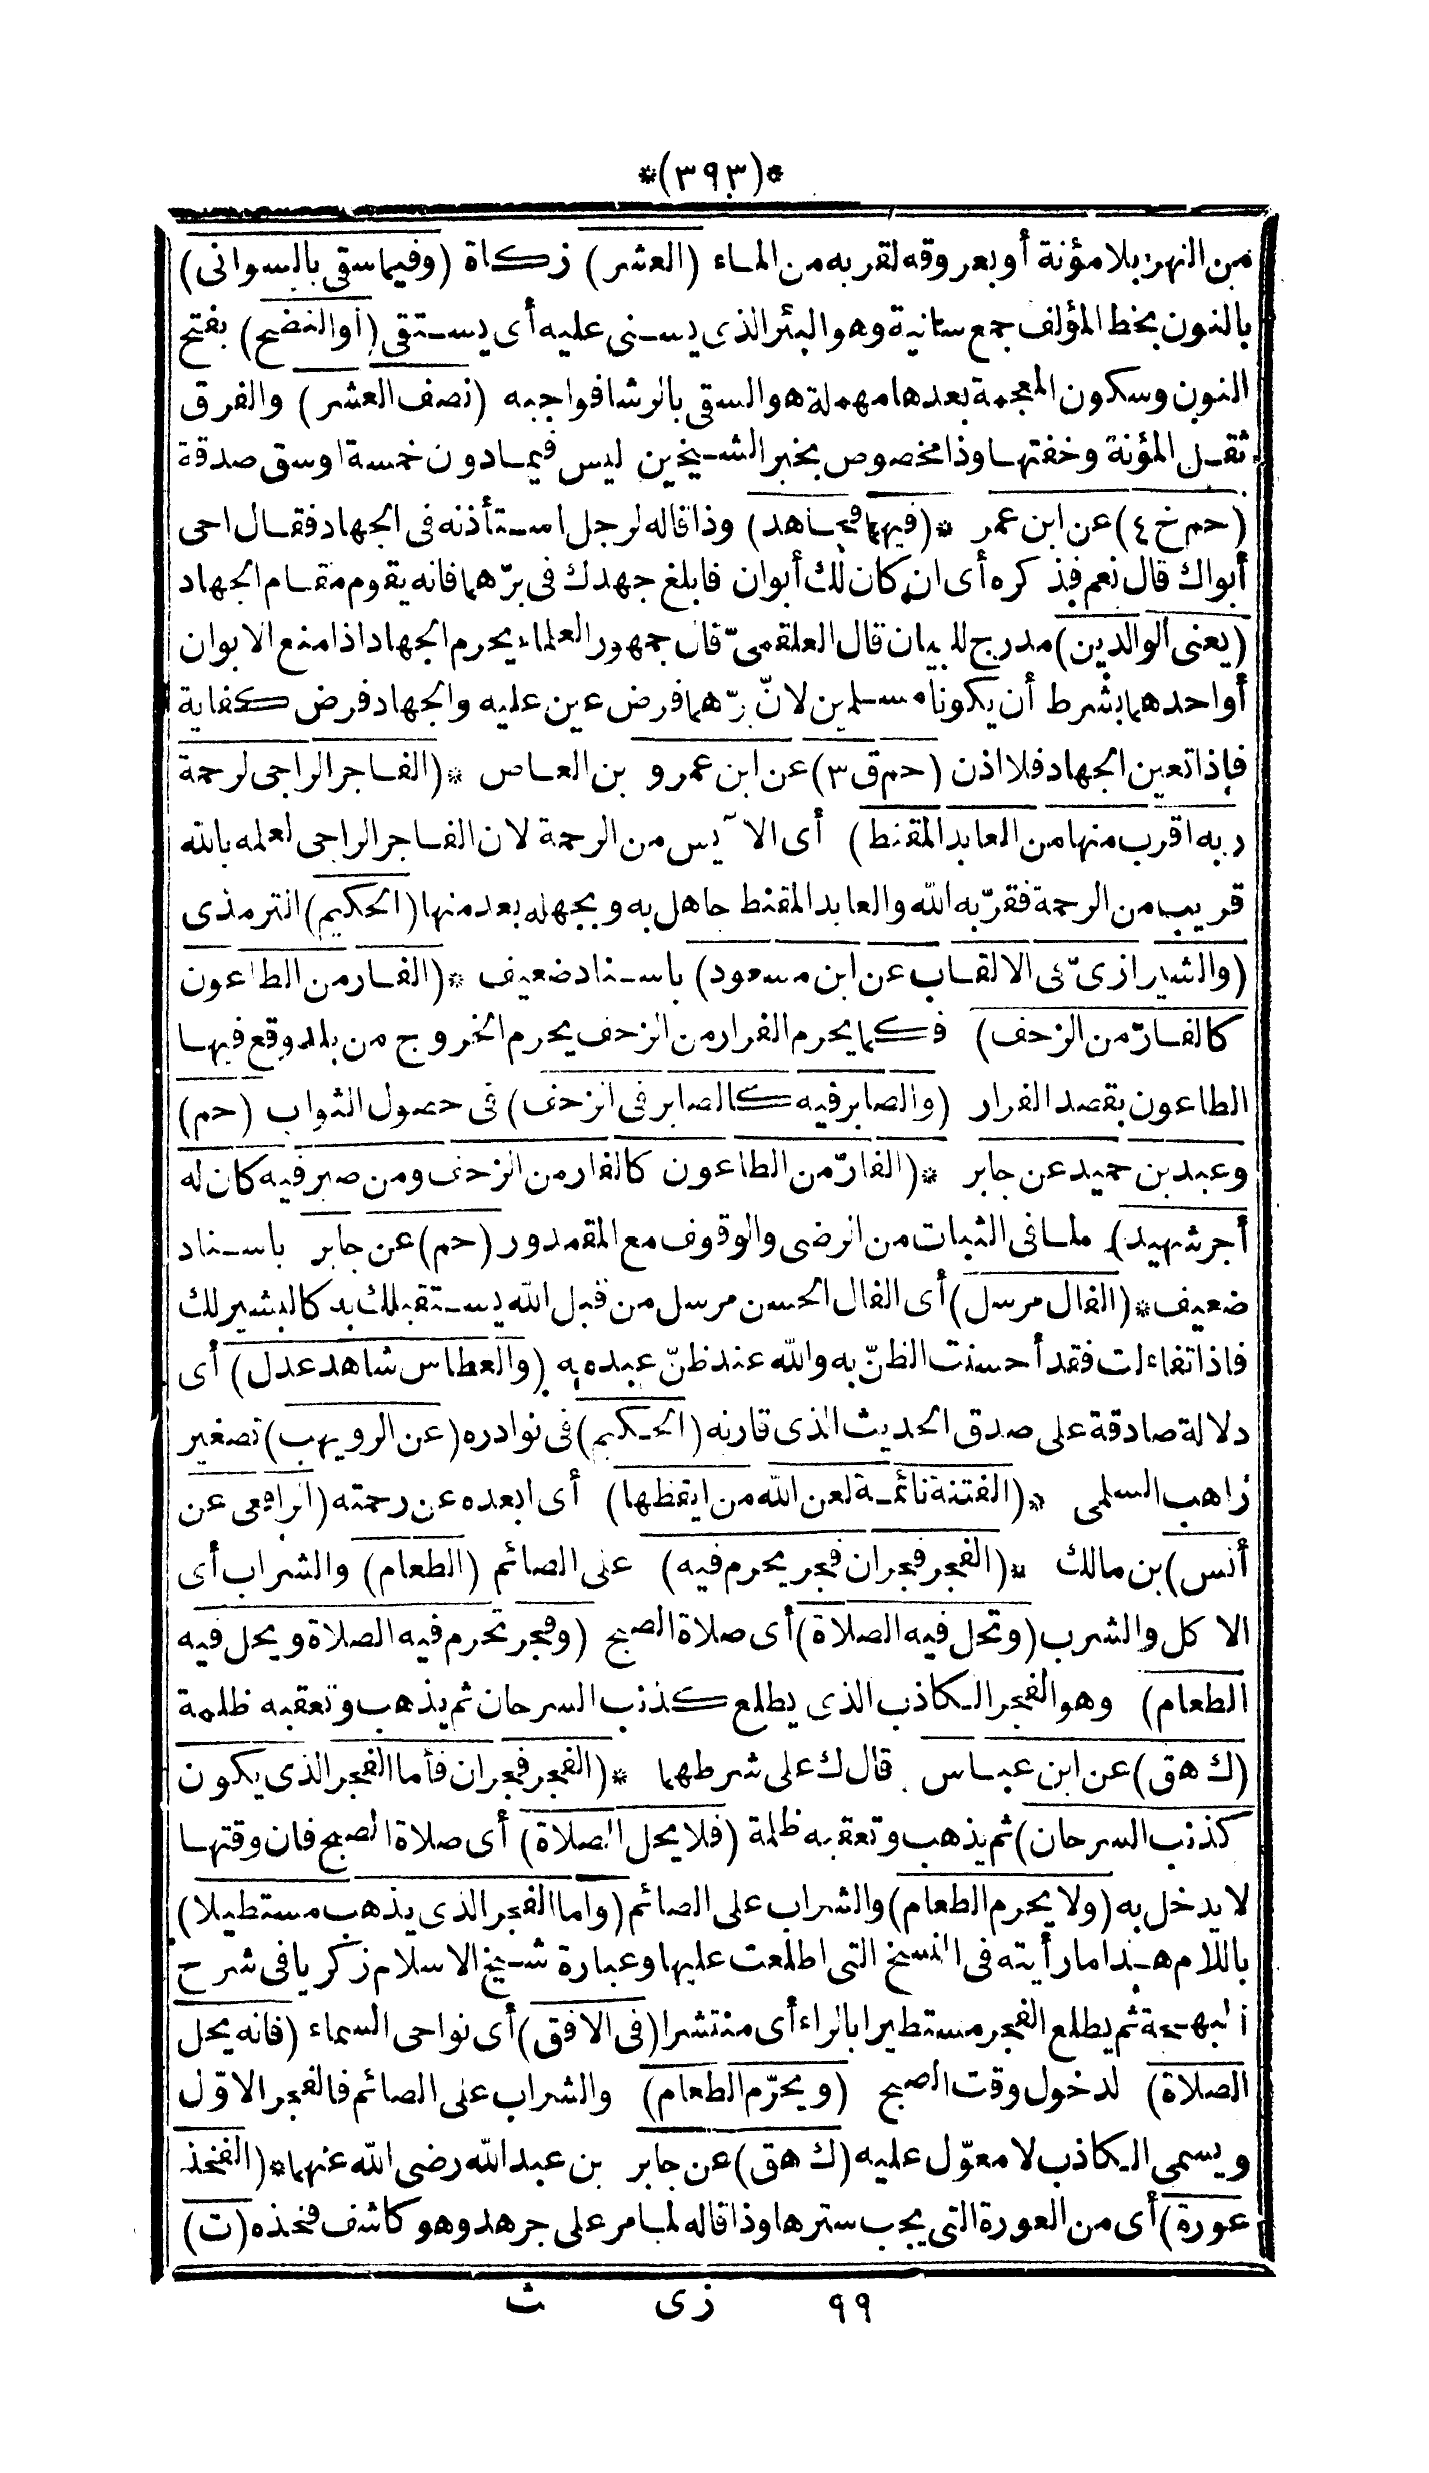 *(٣٩٣)*
من النهر بلا مؤنة أو بعروقه لقربه من الماء (العشر) زكاة (وفيما سقى بالسوانى)
بالنون بخط المؤلف جمع سانية وهو البئر الذى يسنى عليه أى يستقى (أو النضح) بفتح
النون وسكون المعجمة بعدها مهملة هو السقى بالرشا فواجبه (نصف العشر) والفرق
ثقل المؤنة وخفتها وذا مخصوص بخبر الشيخين ليس فيما دون خمسة اوسق صدقة
(حم خ ٤) عن ابن عمر *(فيهما فجاهد) وذا قاله لرجل استأذنه فى الجهاد فقال احى
أبواك قال نعم فذكره أى ان كان لك أبوان فابلغ جهدك فى برّهما فانه يقوم مقام الجهاد
(يعنى الوالدين) مدرج للبيان قال العلقمىّ قال جمهور العلماء يحرم الجهاد اذا منع الابوان
أو احدهما بشرط أن يكونا مسلمين لانّ برّهما فرض عين عليه والجهاد فرض كفاية
فإذا تعين الجهاد فلا اذن (حم ق ٣) عن ابن عمرو بن العاص *(الفاجر الراجى لرحمة
ربه اقرب منها من العابد المقنط) أى الآيس من الرحمة لان الفاجر الراجى لعلمه بالله
قريب من الرحمة فقرّبه الله والعابد المقنط جاهل به وبجهله بعد منها (الحكيم) الترمذى
(والشيرازىّ فى الالقاب عن ابن مسعود) باسناد ضعيف *(الفار من الطاعون
كالفارّ من الزحف) فكما يحرم الفرار من الزحف يحرم الخروج من بلد وقع فيها
الطاعون بقصد الفرار (والصابر فيه كالصابر فى الزحف) فى حصول الثواب (حم)
وعبد بن حميد عن جابر *(الفارّ من الطاعون كالفار من الزحف ومن صبر فيه كان له
أجر شهيد) لما فى الثبات من الرضى والوقوف مع المقدور (حم) عن جابر باسناد
ضعيف *(الفال مرسل) أى الفال الحسن مرسل من قبل الله يستقبلك به كالبشير لك
فاذا تفاءلت فقد أحسنت الظنّ به والله عند ظنّ عبده به (والعطاس شاهد عدل) أى
دلالة صادقة على صدق الحديث الذى قارنه (الحكيم) فى نوادره (عن الرويهب) تصغير
راهب السلمى *(الفتنة نائمة لعن الله من ايقظها) أى ابعده عن رحمته (الرافعى عن
أنس) بن مالك *(الفجر فجران فجر يحرم فيه) على الصائم (الطعام) والشراب أى
الاكل والشرب (وتحل فيه الصلاة) أى صلاة الصبح (وفجر تحرم فيه الصلاة ويحل فيه
الطعام) وهو الفجر الكاذب الذى يطلع كذنب السرحان ثم يذهب وتعقبه ظلمة
(ك هق) عن ابن عباس قال ك على شرطهما *(الفجر فجران فأما الفجر الذى يكون
كذنب السرحان) ثم يذهب وتعقبه ظلمة (فلا يحل الصلاة) أى صلاة الصبح فان وقتها
لا يدخل به (ولا يحرم الطعام) والشراب على الصائم (واما الفجر الذى يذهب مستطيلا)
باللام هذا ما رأيته فى النسخ التى اطلعت عليها وعبارة شيخ الاسلام زكريا فى شرح
البهجة ثم يطلع الفجر مستطيرا بالراء أى منتشرا (فى الافق) أى نواحى السماء (فانه يحل
الصلاة) لدخول وقت الصبح (ويحرّم الطعام) والشراب على الصائم فالفجر الاوّل
ويسمى الكاذب لا معوّل عليه (ك هق) عن جابر بن عبد الله رضى الله عنهما *(الفخذ
عورة) أى من العورة التى يجب سترها وذا قاله لما مر على جرهد وهو كاشف فخذه (ت)
٩٩ زى ث